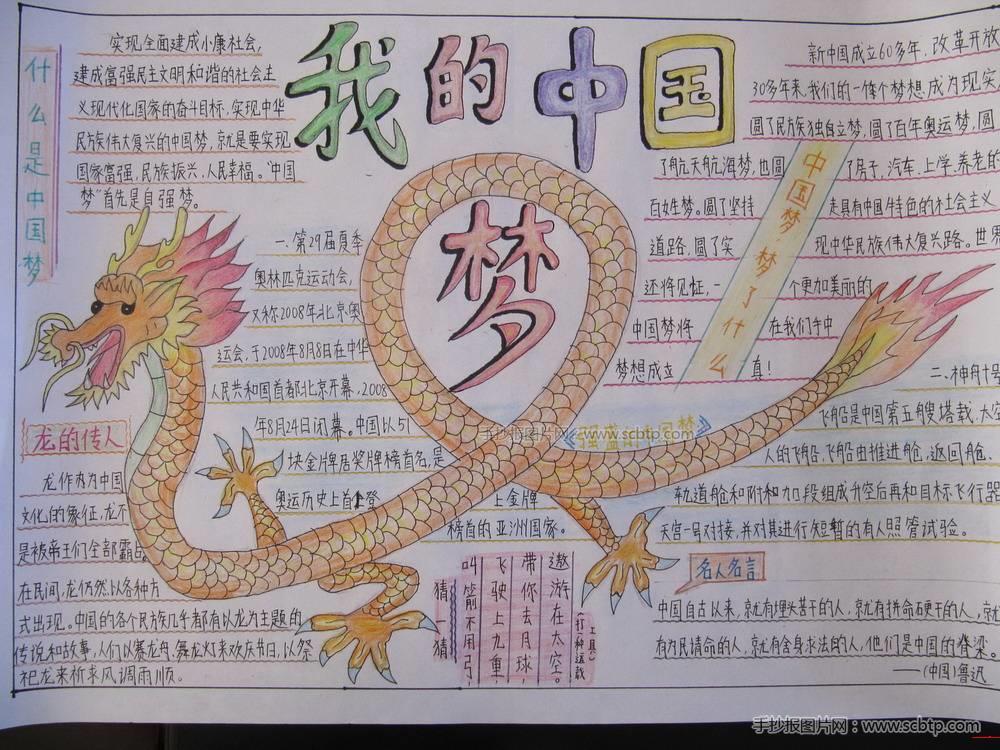 我的中国
梦
什么是中国梦
实现全面建成小康社会,
建成富强民主文明和谐的社会主
义现代化国家的奋斗目标,实现中华
民族伟大复兴的中国梦,就是要实现
国家富强,民族振兴,人民幸福。“中国
梦”首先是自强梦。
一、第29届夏季
奥林匹克运动会,
又称2008年北京奥
运会,于2008年8月8日在中华
人民共和国首都北京开幕,2008
年8月24日闭幕。中国以51
块金牌居奖牌榜首名,是
奥运历史上首登上金牌
榜首的亚洲国家。
龙的传人
龙作为中国
文化的象征,龙不
是被帝王们全部霸占
在民间,龙仍然以各种方
式出现。中国的各个民族几乎都有以龙为主题的
传说和故事,人们以赛龙舟、舞龙灯来欢庆节日,以祭
祀龙来祈求风调雨顺。
新中国成立60多年,改革开放
30多年来,我们的一个个梦想成为现实
圆了民族独自立梦,圆了百年奥运梦,圆
了航天航海梦,也圆了房子,汽车,上学,养老的
百姓梦。圆了坚持走具有中国特色的社会主义
道路,圆了实现中华民族伟大复兴路。世界
还将见怔,一个更加美丽的
中国梦将在我们手中
梦想成立真!
中国梦,梦了什么
强盛的中国梦
二、神舟十号
飞船是中国第五艘搭载太空
人的飞船,飞船由推进舱,返回舱、
轨道舱和附加段组成升空后再和目标飞行器
天宫一号对接,并对其进行短暂的有人照管试验。
名人名言
中国自古以来,就有埋头苦干的人,就有拼命硬干的人,就
有为民请命的人,就有舍身求法的人,他们是中国的脊梁。
——(中国)鲁迅
遨游在太空。
带你去月球,
飞驶上九重,
叫箭不用弓,
猜一猜
(打一种运载工具)
手抄报图片网 www.scbtp.com
手抄报图片网:www.scbtp.com